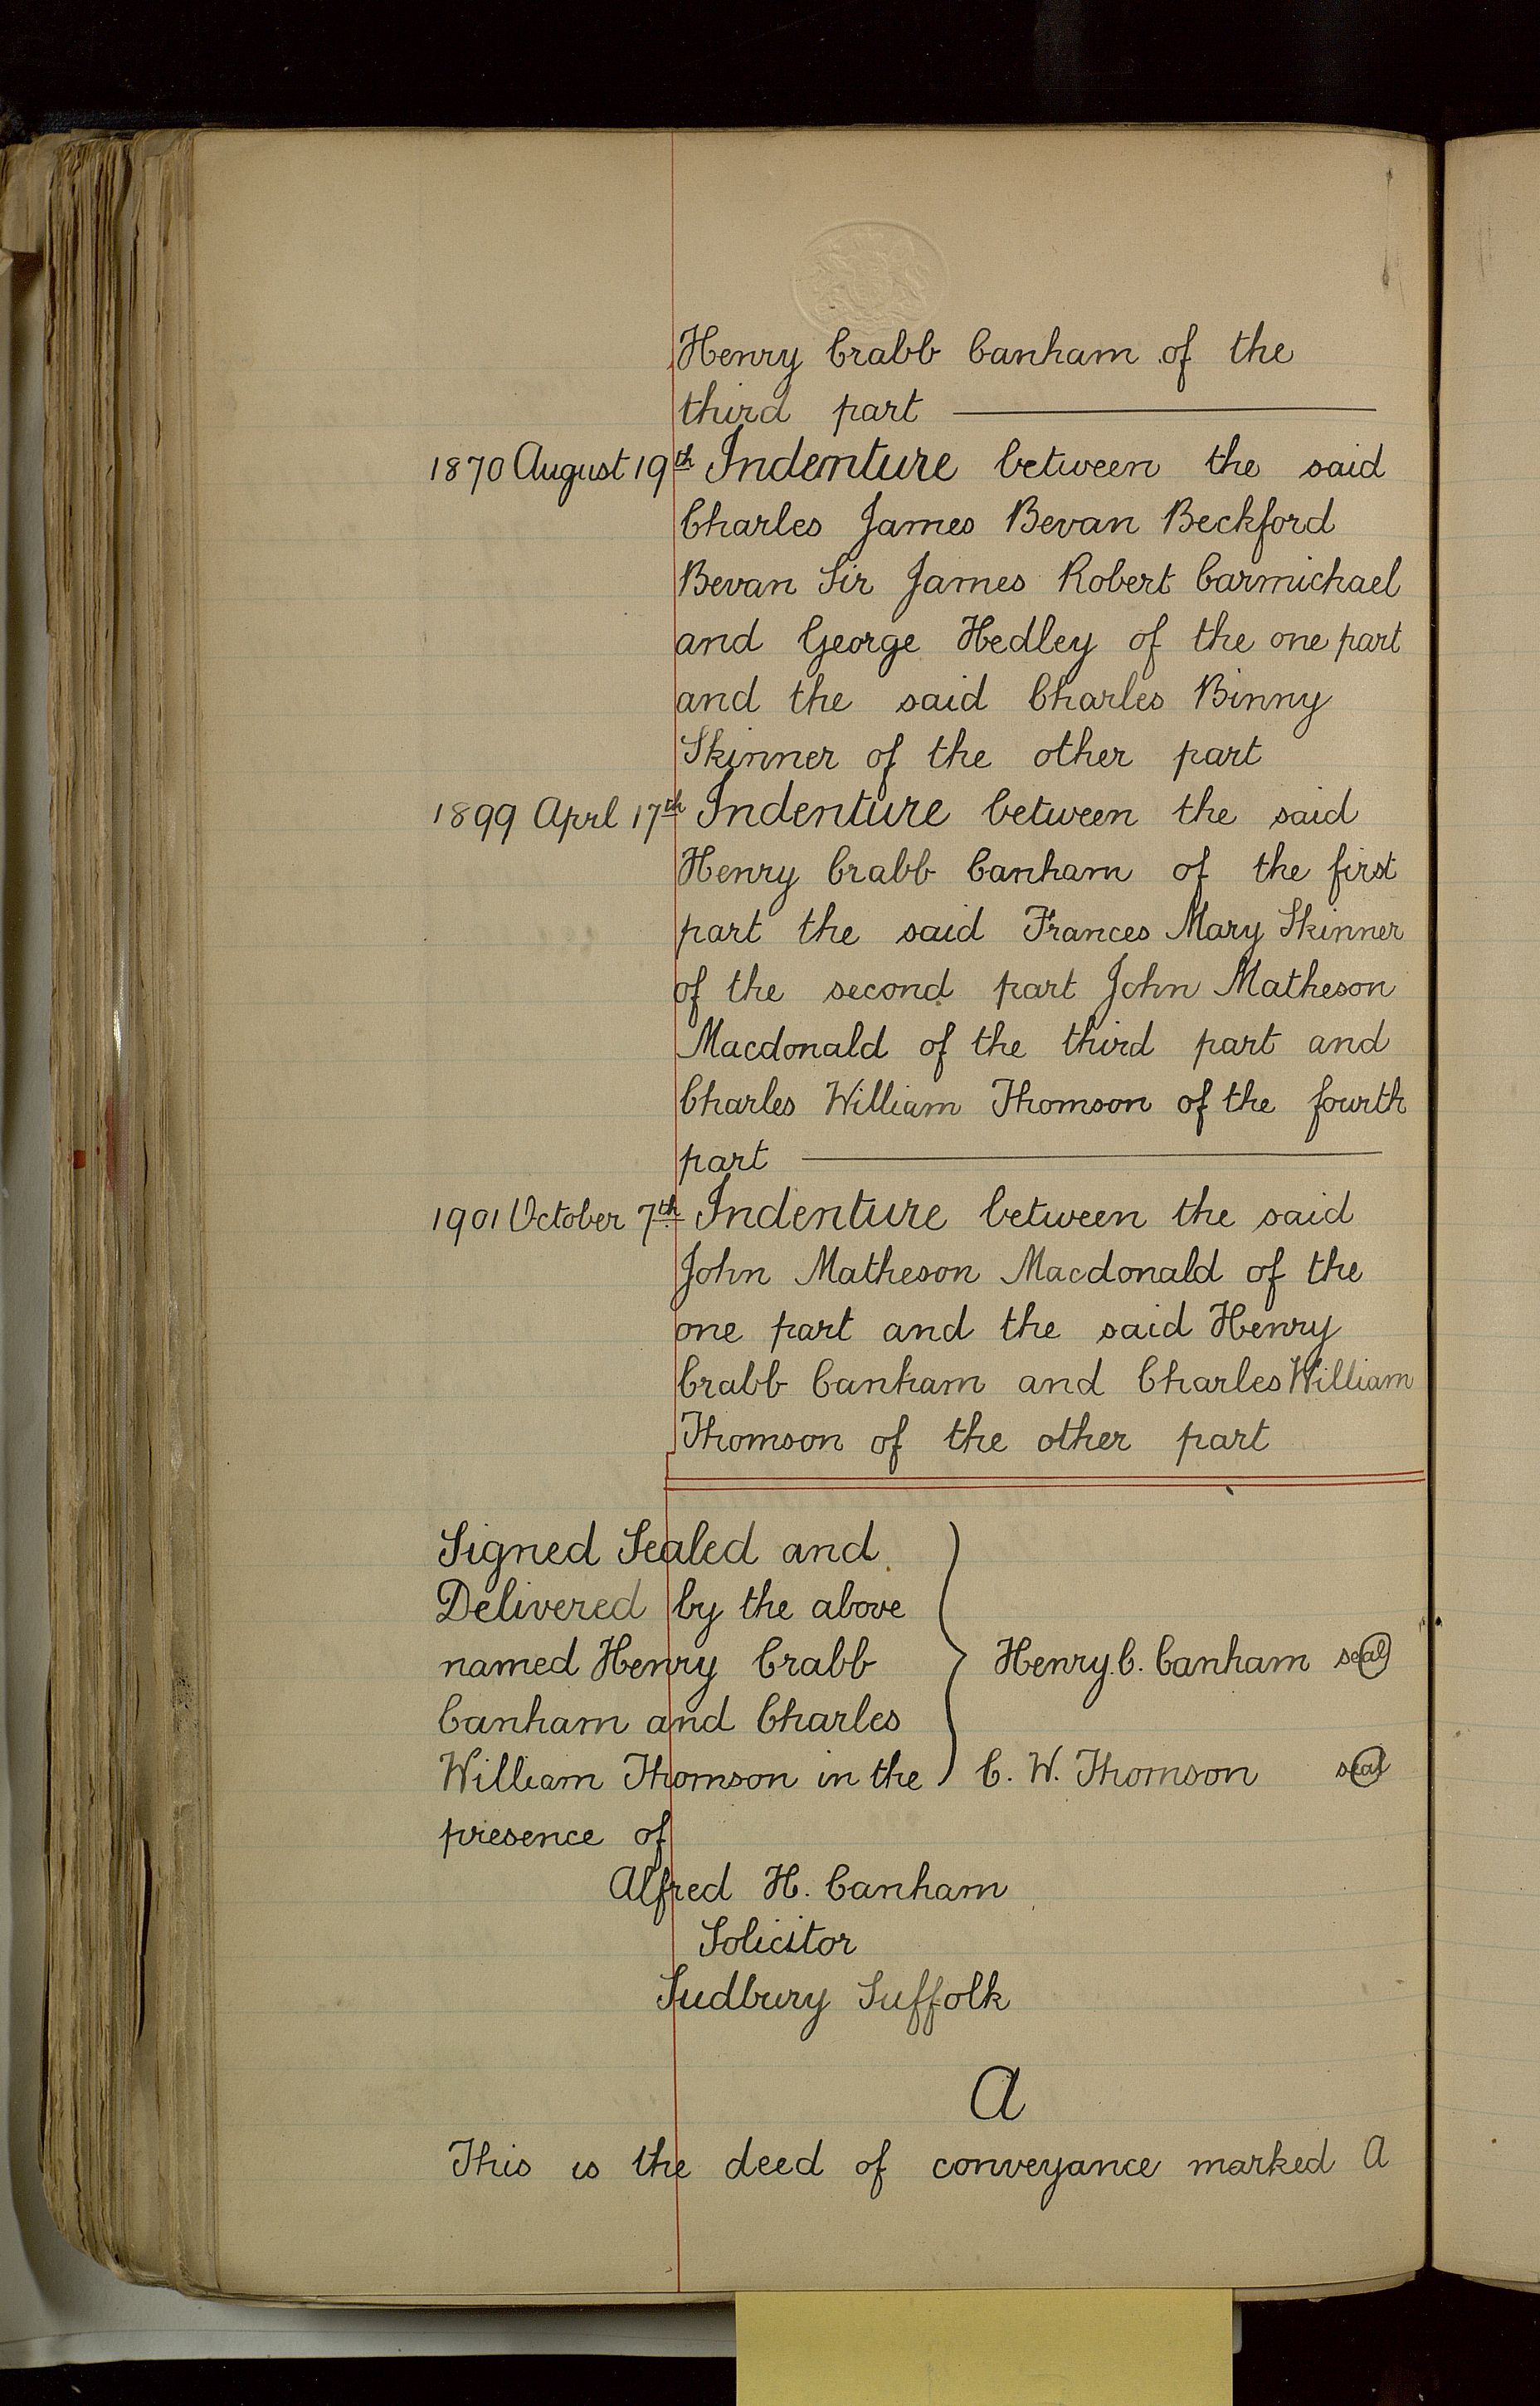 Henry Crabb Canham of the
third part
1870 August 19th Indenture between the said
Charles James Bevan Beckford
Bevan Sir James Robert Carmichael
and George Hedley of the one part
and the said Charles Binny
Skinner of the other part
1899 Aprl 17th Indenture between the said
Henry Crabb Canham of the first
part the said Frances Mary Skinner
of the second part John Matheson
Macdonald of the third part and
Charles William Thomson of the fourth
part
1901 October 7th Indenture between the said
John Matheson Macdonald of the
one part and the said Henry
Crabb Canham and Charles William
Thomson of the other part
Signed Sealed and
Delivered by the above
named Henry Crabb Henry. C. Canham seal
Canham and Charles
William Thomson in the C. W. Thomson seal
presence of
Alfred H. Canham
Solicitor
Sudbury Suffolk
A
This is the deed of conveyance marked A